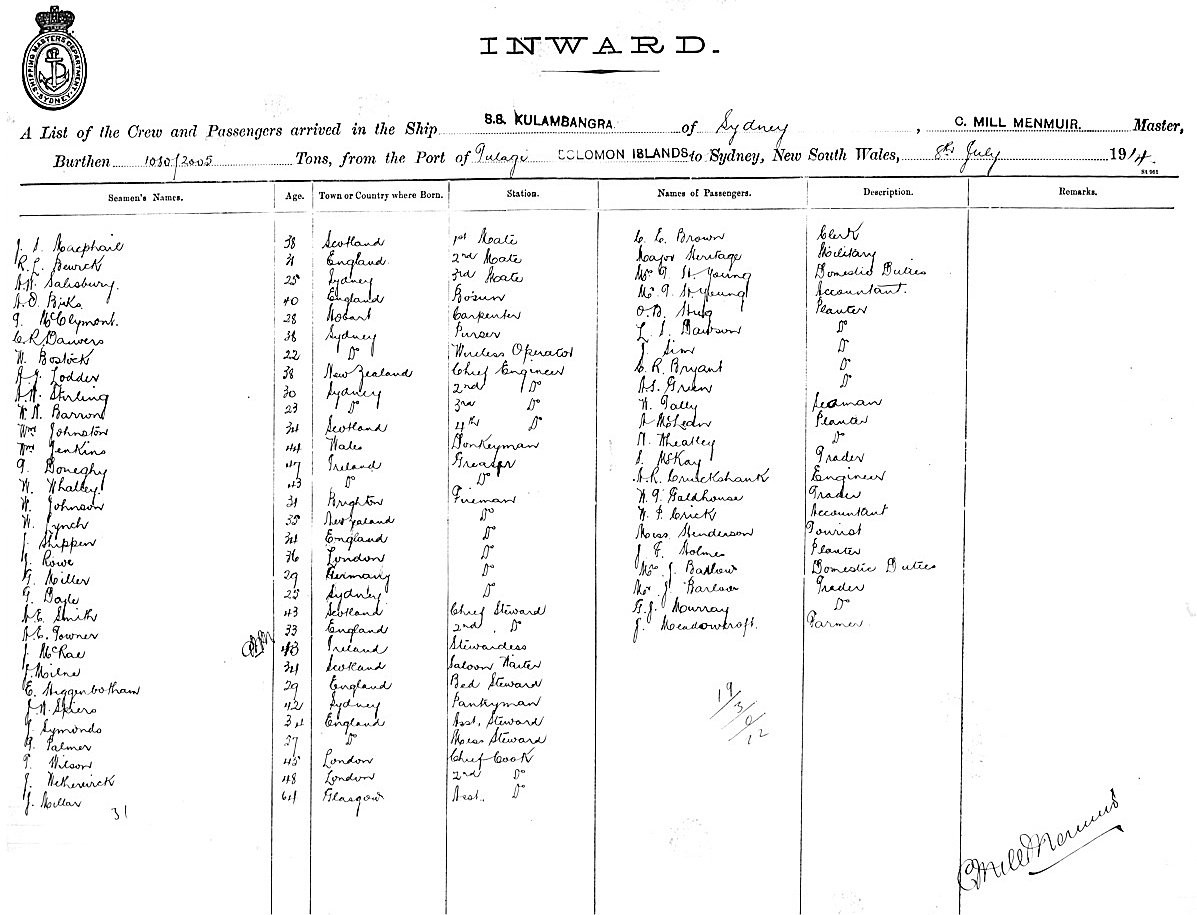 SHIPPING MASTERS DEPARTMENT SYDNEY
INWARD.
A List of the Crew and Passengers arrived in the Ship S.S. KULAMBANGRA of Sydney, C. MILL MENMUIR. Master,
Burthen 1030/2005 Tons, from the Port of Tulagi SOLOMON ISLANDS to Sydney, New South Wales, 8th July 1914.
Seamen's Names. Age. Town or Country where Born. Station. Names of Passengers. Description. Remarks.
J. S. Macphail 38 Scotland 1st Mate C. E. Brown Clerk
R. L. Bewick 31 England 2nd Mate Major Heritage Military
A. W. Salisbury. 25 Sydney 3rd Mate Mrs G. St Young Domestic Duties
A. D. Birks 40 England Bosun Mr G. St Young Accountant.
G. McClymont. 28 Hobart Carpenter O. B. Hug Planter
C. R. Danvers 38 Sydney Purser L. S. Dawson Do
W. Bostock 22 Do Wireless Operator J. Sim Do
A. J. Lodder 38 New Zealand Chief Engineer C. R. Bryant Do
A. W. Stirling 30 Sydney 2nd Do A. S. Green Do
W. N. Barron 23 Do 3rd Do W. Gally Seaman
Wm Johnston 34 Scotland 4th Do A McLean Planter
Wm Jenkins 44 Wales Donkeyman N. Wheatley Do
G. Doneghy 47 Ireland Greaser S. McKay Trader
W. Whalley 43 Do Do A. R. Cruickshank Engineer
W. Johnson 31 Brighton Fireman W. G. Faldhouse Trader
W. Lynch 35 New Zealand Do W. P. Crick Accountant
J. Shippen 34 England Do Miss Henderson Tourist
J. Rowe 36 London Do J. F. Holmes Planter
G. Miller 29 Germany Do Mrs J. Barlow Domestic Duties
G. Doyle 25 Sydney Do Mr J. Barlow Trader
A. E. Smith 43 Scotland Chief Steward G. J. Murray Do
A. E. Towner 33 England 2nd Do J. Meadowcroft. Farmer
J. McRae 43 Ireland Stewardess
J. Milne 34 Scotland Saloon Waiter
E. Higginbotham 29 England Bed Steward
J. W. Spiers 42 Sydney Pantryman
J. Symonds 34 England Asst. Steward
G. Palmer 27 Do Mess Steward
T. Wilson 45 London Chief Cook
J. Wetherick 48 London 2nd Do
J. Millar 64 Glasgow Asst. Do
31
19/3/0/12
C Mill Menmuir